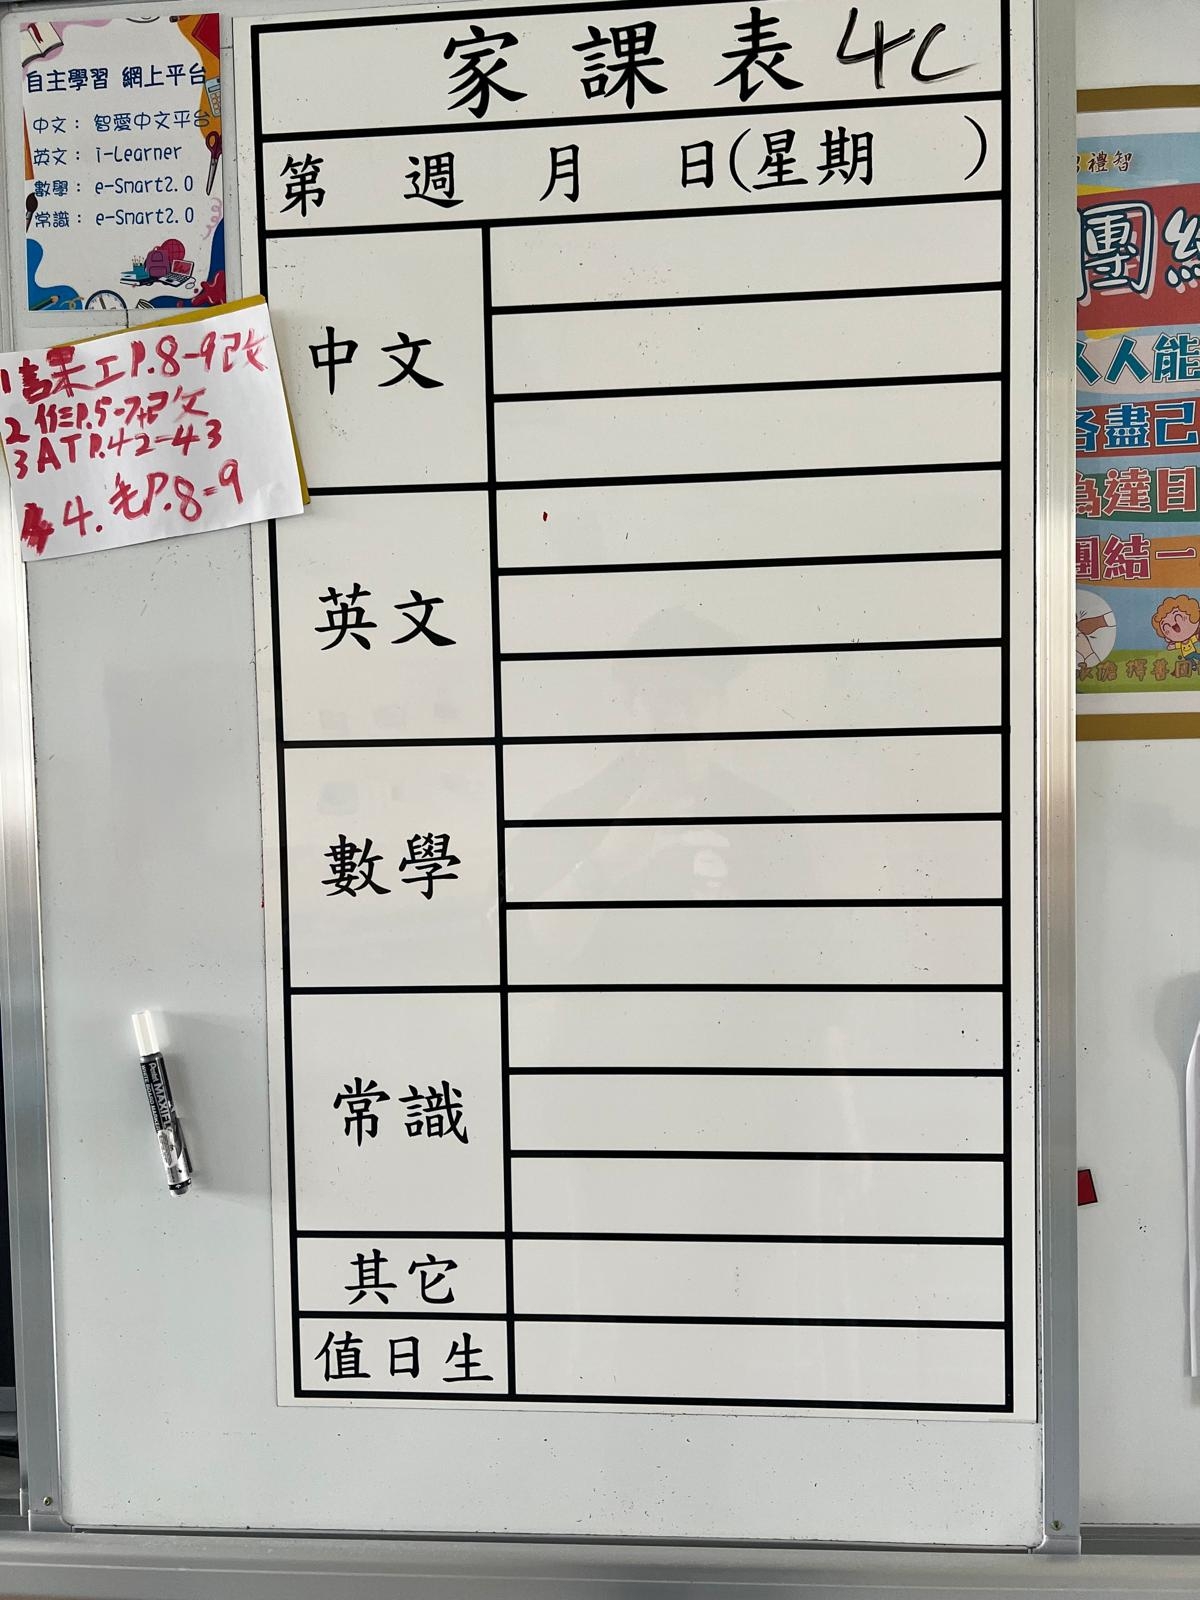 家課表 4C
第 週 月 日(星期 )
中文
英文
數學
常識
其它
值日生
自主學習 網上平台
中文： 智愛中文平台
英文： i-Learner
數學： e-Smart2.0
常識： e-Smart2.0
1 書課工P.8-9已改
2 作P.5-7已改
3 AT P.42-43
4. 毛P.8-9
禮智
團結
人人能
各盡己
為達目
團結一